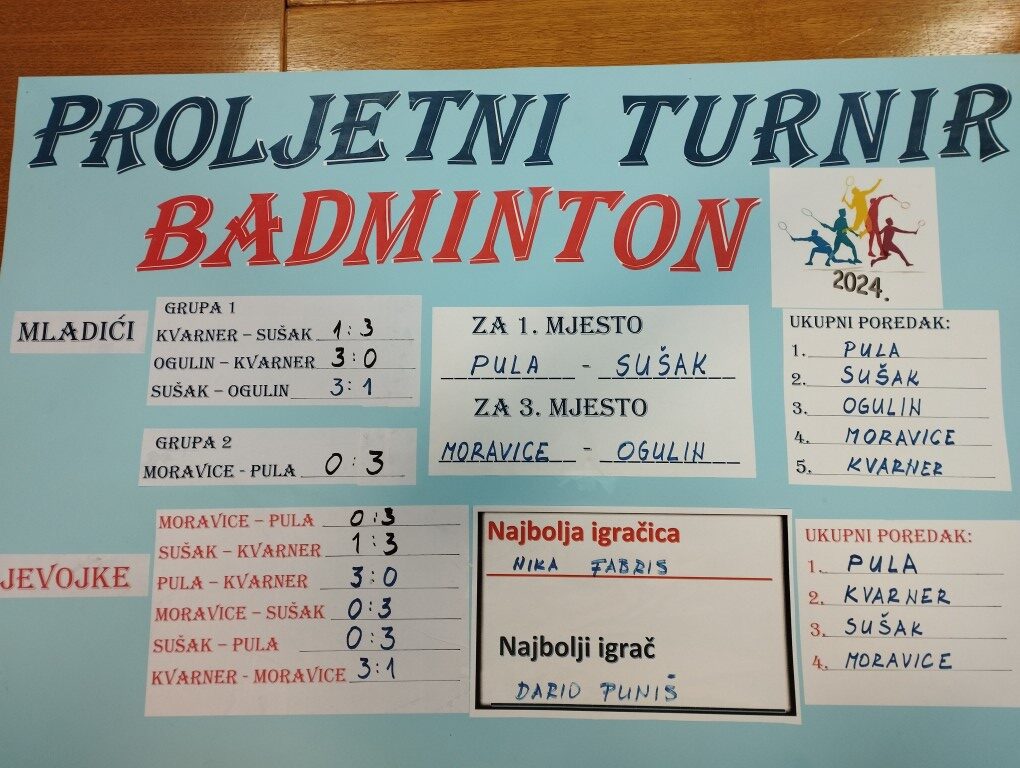 PROLJETNI TURNIR
BADMINTON
2024.
MLADIĆI
GRUPA 1
KVARNER – SUŠAK 1:3
OGULIN – KVARNER 3:0
SUŠAK – OGULIN 3:1
GRUPA 2
MORAVICE - PULA 0:3
ZA 1. MJESTO
PULA - SUŠAK
ZA 3. MJESTO
MORAVICE - OGULIN
UKUPNI POREDAK:
1. PULA
2. SUŠAK
3. OGULIN
4. MORAVICE
5. KVARNER
JEVOJKE
MORAVICE – PULA 0:3
SUŠAK – KVARNER 1:3
PULA – KVARNER 3:0
MORAVICE – SUŠAK 0:3
SUŠAK – PULA 0:3
KVARNER - MORAVICE 3:1
Najbolja igračica
NIKA FABRIS
Najbolji igrač
DARIO PUNIŠ
UKUPNI POREDAK:
1. PULA
2. KVARNER
3. SUŠAK
4. MORAVICE